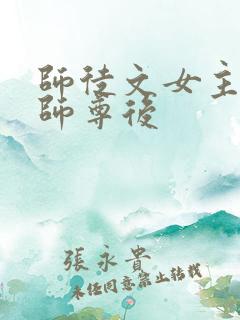 師徒文女主
師尊後
張永貴
未經同意禁止轉載